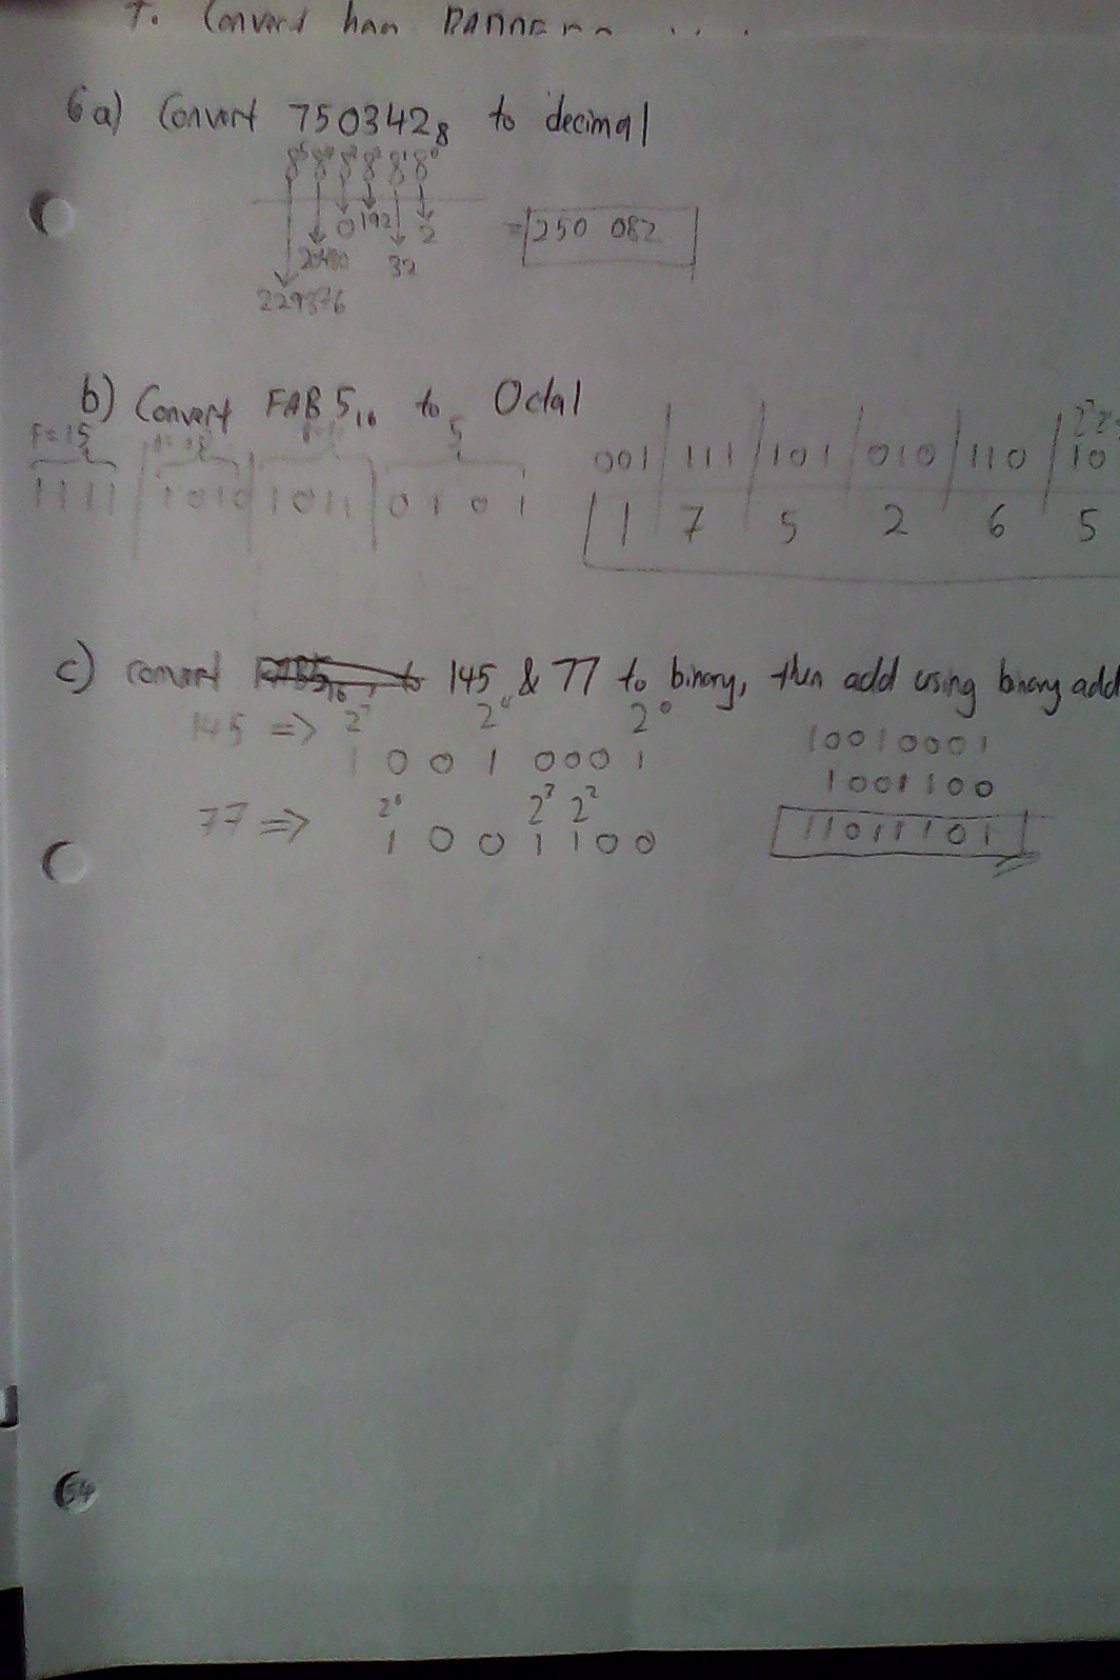 6a) Convert 750342₈ to decimal
8⁵ 8⁴ 8³ 8² 8¹ 8⁰
0 192 2
= 250 082
20480 32
229376
b) Convert FAB5₁₆ to Octal
F=15 5
1111 1010 1011 0101
001 111 101 010 110 10
1 7 5 2 6 5
c) convert 145 & 77 to binary, then add using binary add
145 => 2⁷ 2⁴ 2⁰
1 0 0 1 0 0 0 1
77 => 2⁶ 2³ 2²
1 0 0 1 1 0 0
10010001
1001100
11011101